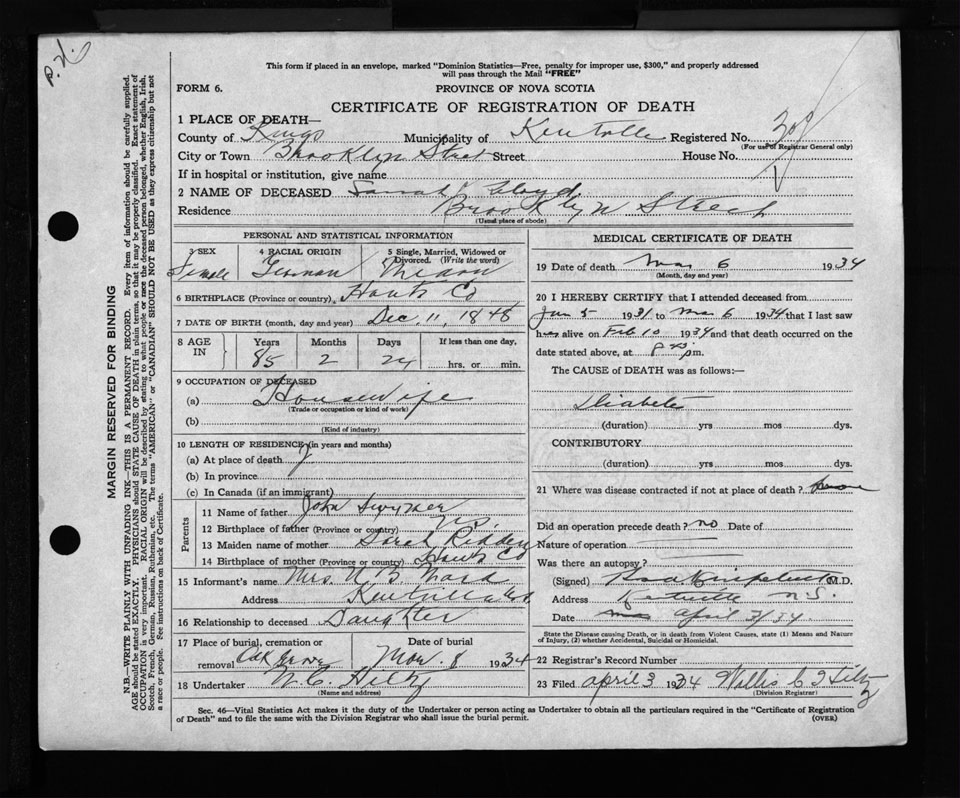 P.H.
This form if placed in an envelope, marked "Dominion Statistics—Free, penalty for improper use, $300," and properly addressed
will pass through the Mail "FREE"
FORM 6.
PROVINCE OF NOVA SCOTIA
CERTIFICATE OF REGISTRATION OF DEATH
1 PLACE OF DEATH—
County of Kings Municipality of Kentville Registered No. 308
(For use of Registrar General only)
City or Town Brooklyn Street Street House No.
If in hospital or institution, give name
2 NAME OF DECEASED Sarah Lloyd
Residence Brooklyn Street
(Usual place of abode)
PERSONAL AND STATISTICAL INFORMATION
3 SEX 4 RACIAL ORIGIN 5 Single, Married, Widowed or
Divorced. (Write the word)
Female German
6 BIRTHPLACE (Province or country) Hants Co
7 DATE OF BIRTH (month, day and year) Dec, 11, 1848
8 AGE IN Years Months Days If less than one day,
85 2 24 hrs. or min.
9 OCCUPATION OF DECEASED
(a) Housewife
(Trade or occupation or kind of work)
(b)
(Kind of industry)
10 LENGTH OF RESIDENCE (in years and months)
(a) At place of death
(b) In province
(c) In Canada (if an immigrant)
Parents
11 Name of father John
12 Birthplace of father (Province or country)
13 Maiden name of mother Sarah
14 Birthplace of mother (Province or country) Hants Co
15 Informant's name Mrs.
Address Kentville
16 Relationship to deceased Daughter
17 Place of burial, cremation or Date of burial
removal Oak Grove Mar. 8 1934
18 Undertaker W. C. Hiltz
(Name and address)
MEDICAL CERTIFICATE OF DEATH
19 Date of death Mar 6 1934
(Month, day and year)
20 I HEREBY CERTIFY that I attended deceased from
Jan 5 1931 to Mar 6 1934 that I last saw
h alive on Feb 10 1934 and that death occurred on the
date stated above, at pm.
The CAUSE of DEATH was as follows:—
Diabetes
(duration) yrs mos dys.
CONTRIBUTORY.
(duration) yrs. mos. dys.
21 Where was disease contracted if not at place of death?
Did an operation precede death? no Date of
Nature of operation
Was there an autopsy?
(Signed) M.D.
Address Kentville N.S.
Date April 3/34.
State the Disease causing Death, or in death from Violent Causes, state (1) Means and Nature
of Injury, (2) whether Accidental, Suicidal or Homicidal.
22 Registrar's Record Number
23 Filed April 3 1934 Willis C Hiltz
(Division Registrar)
Sec. 46—Vital Statistics Act makes it the duty of the Undertaker or person acting as Undertaker to obtain all the particulars required in the "Certificate of Registration
of Death" and to file the same with the Division Registrar who shall issue the burial permit. (OVER)
MARGIN RESERVED FOR BINDING
N.B.—WRITE PLAINLY WITH UNFADING INK—THIS IS A PERMANENT RECORD. Every item of information should be carefully supplied.
AGE should be stated EXACTLY. PHYSICIANS should STATE CAUSE OF DEATH in plain terms, so that it may be properly classified. Exact statement of
OCCUPATION is very important. RACIAL ORIGIN will be described by stating to what people or race the deceased person belonged, whether English, Irish,
Scotch, French, German, Russian, Ruthenian, etc. The terms "AMERICAN" or "CANADIAN" SHOULD NOT BE USED as they express citizenship but not
a race or people. See instructions on back of Certificate.